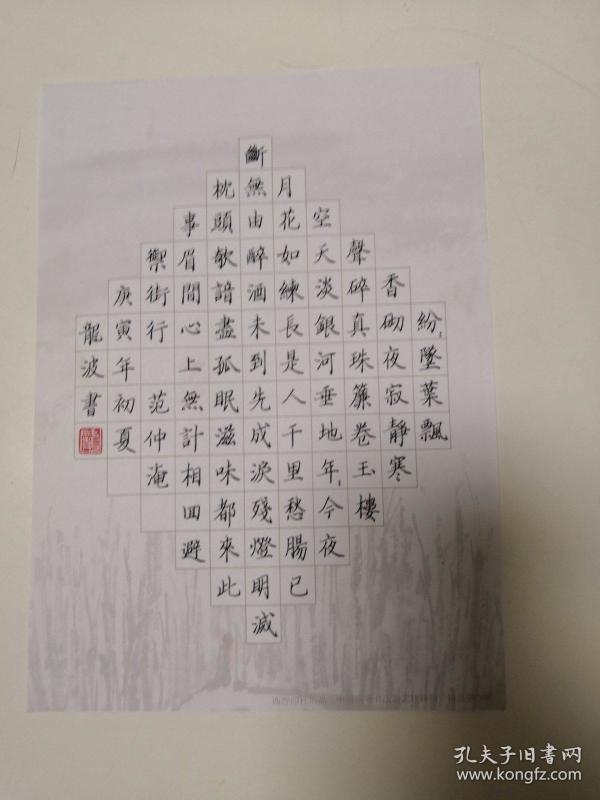 紛〻墜葉飄
香砌夜寂靜寒
聲碎真珠簾卷玉樓
空天淡銀河垂地年〻今夜
月花如練長是人千里愁腸已
斷無由醉酒未到先成淚殘燈明滅
枕頭欹諳盡孤眠滋味都來此
事眉間心上無計相回避
禦街行 范仲淹
庚寅年初夏
龍波書
孔夫子旧书网
www.kongfz.com